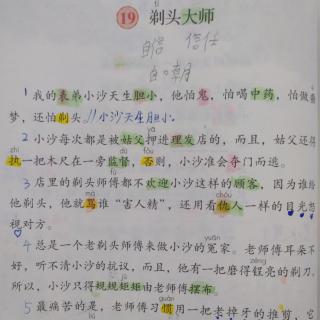 tì
19 剃头大师
自信 信任
自
1 我的表弟小沙天生胆小，他怕鬼，怕喝中药，怕做
梦，还怕剃头。//小沙天生胆小
yā
2 小沙每次都是被姑父押进理发店的，而且，姑父还得
zhí dū fǒu duó
执一把木尺在一旁监督，否则，小沙准会夺门而逃。
3 店里的剃头师傅都不欢迎小沙这样的顾客，因为谁给
mà chóu
他剃头，他就骂谁“害人精”，还用看仇人一样的目光
视对方。
yuān
4 总是一个老剃头师傅来做小沙的冤家。老师傅耳朵不
zèng
好，听不清小沙的抗议，而且，他有一把磨得锃亮的剃刀。
所以，小沙只得规规矩矩由老师傅摆布。
guàn
5 最痛苦的是，老师傅习惯用一把老掉牙的推剪，它